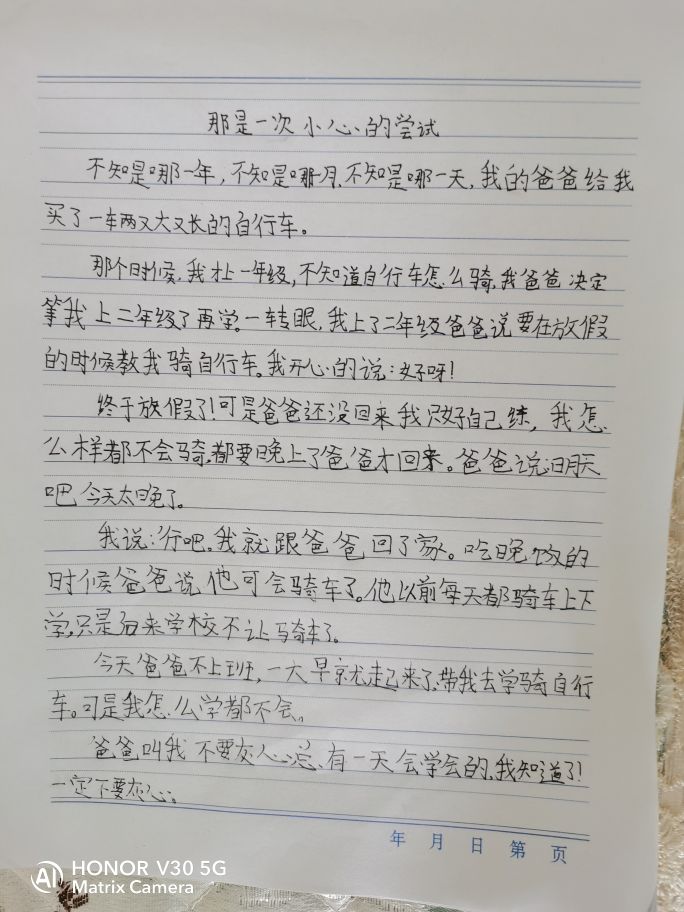 那是一次小心的尝试
不知是哪一年，不知是哪一月，不知是哪一天，我的爸爸给我
买了一车两又大又长的自行车。
那个时候，我才上一年级，不知道自行车怎么骑，我爸爸决定
等我上二年级了再学。一转眼，我上了二年级爸爸说要在放假
的时候教我骑自行车。我开心的说：好呀！
终于放假了！可是爸爸还没回来我只好自己练，我怎
么样都不会骑，都要晚上了爸爸才回来。爸爸说：明天
吧今天太晚了。
我说：行吧。我就跟爸爸回了家。吃晚饭的
时候爸爸说他可会骑车了。他以前每天都骑车上下
学，只是后来学校不让骑车了。
今天爸爸不上班，一大早就起来了，带我去学骑自行
车。可是我怎么学都不会。
爸爸叫我不要灰心，有一天会学会的，我知道了！
一定不要灰心。
年 月 日 第 页
HONOR V30 5G
Matrix Camera